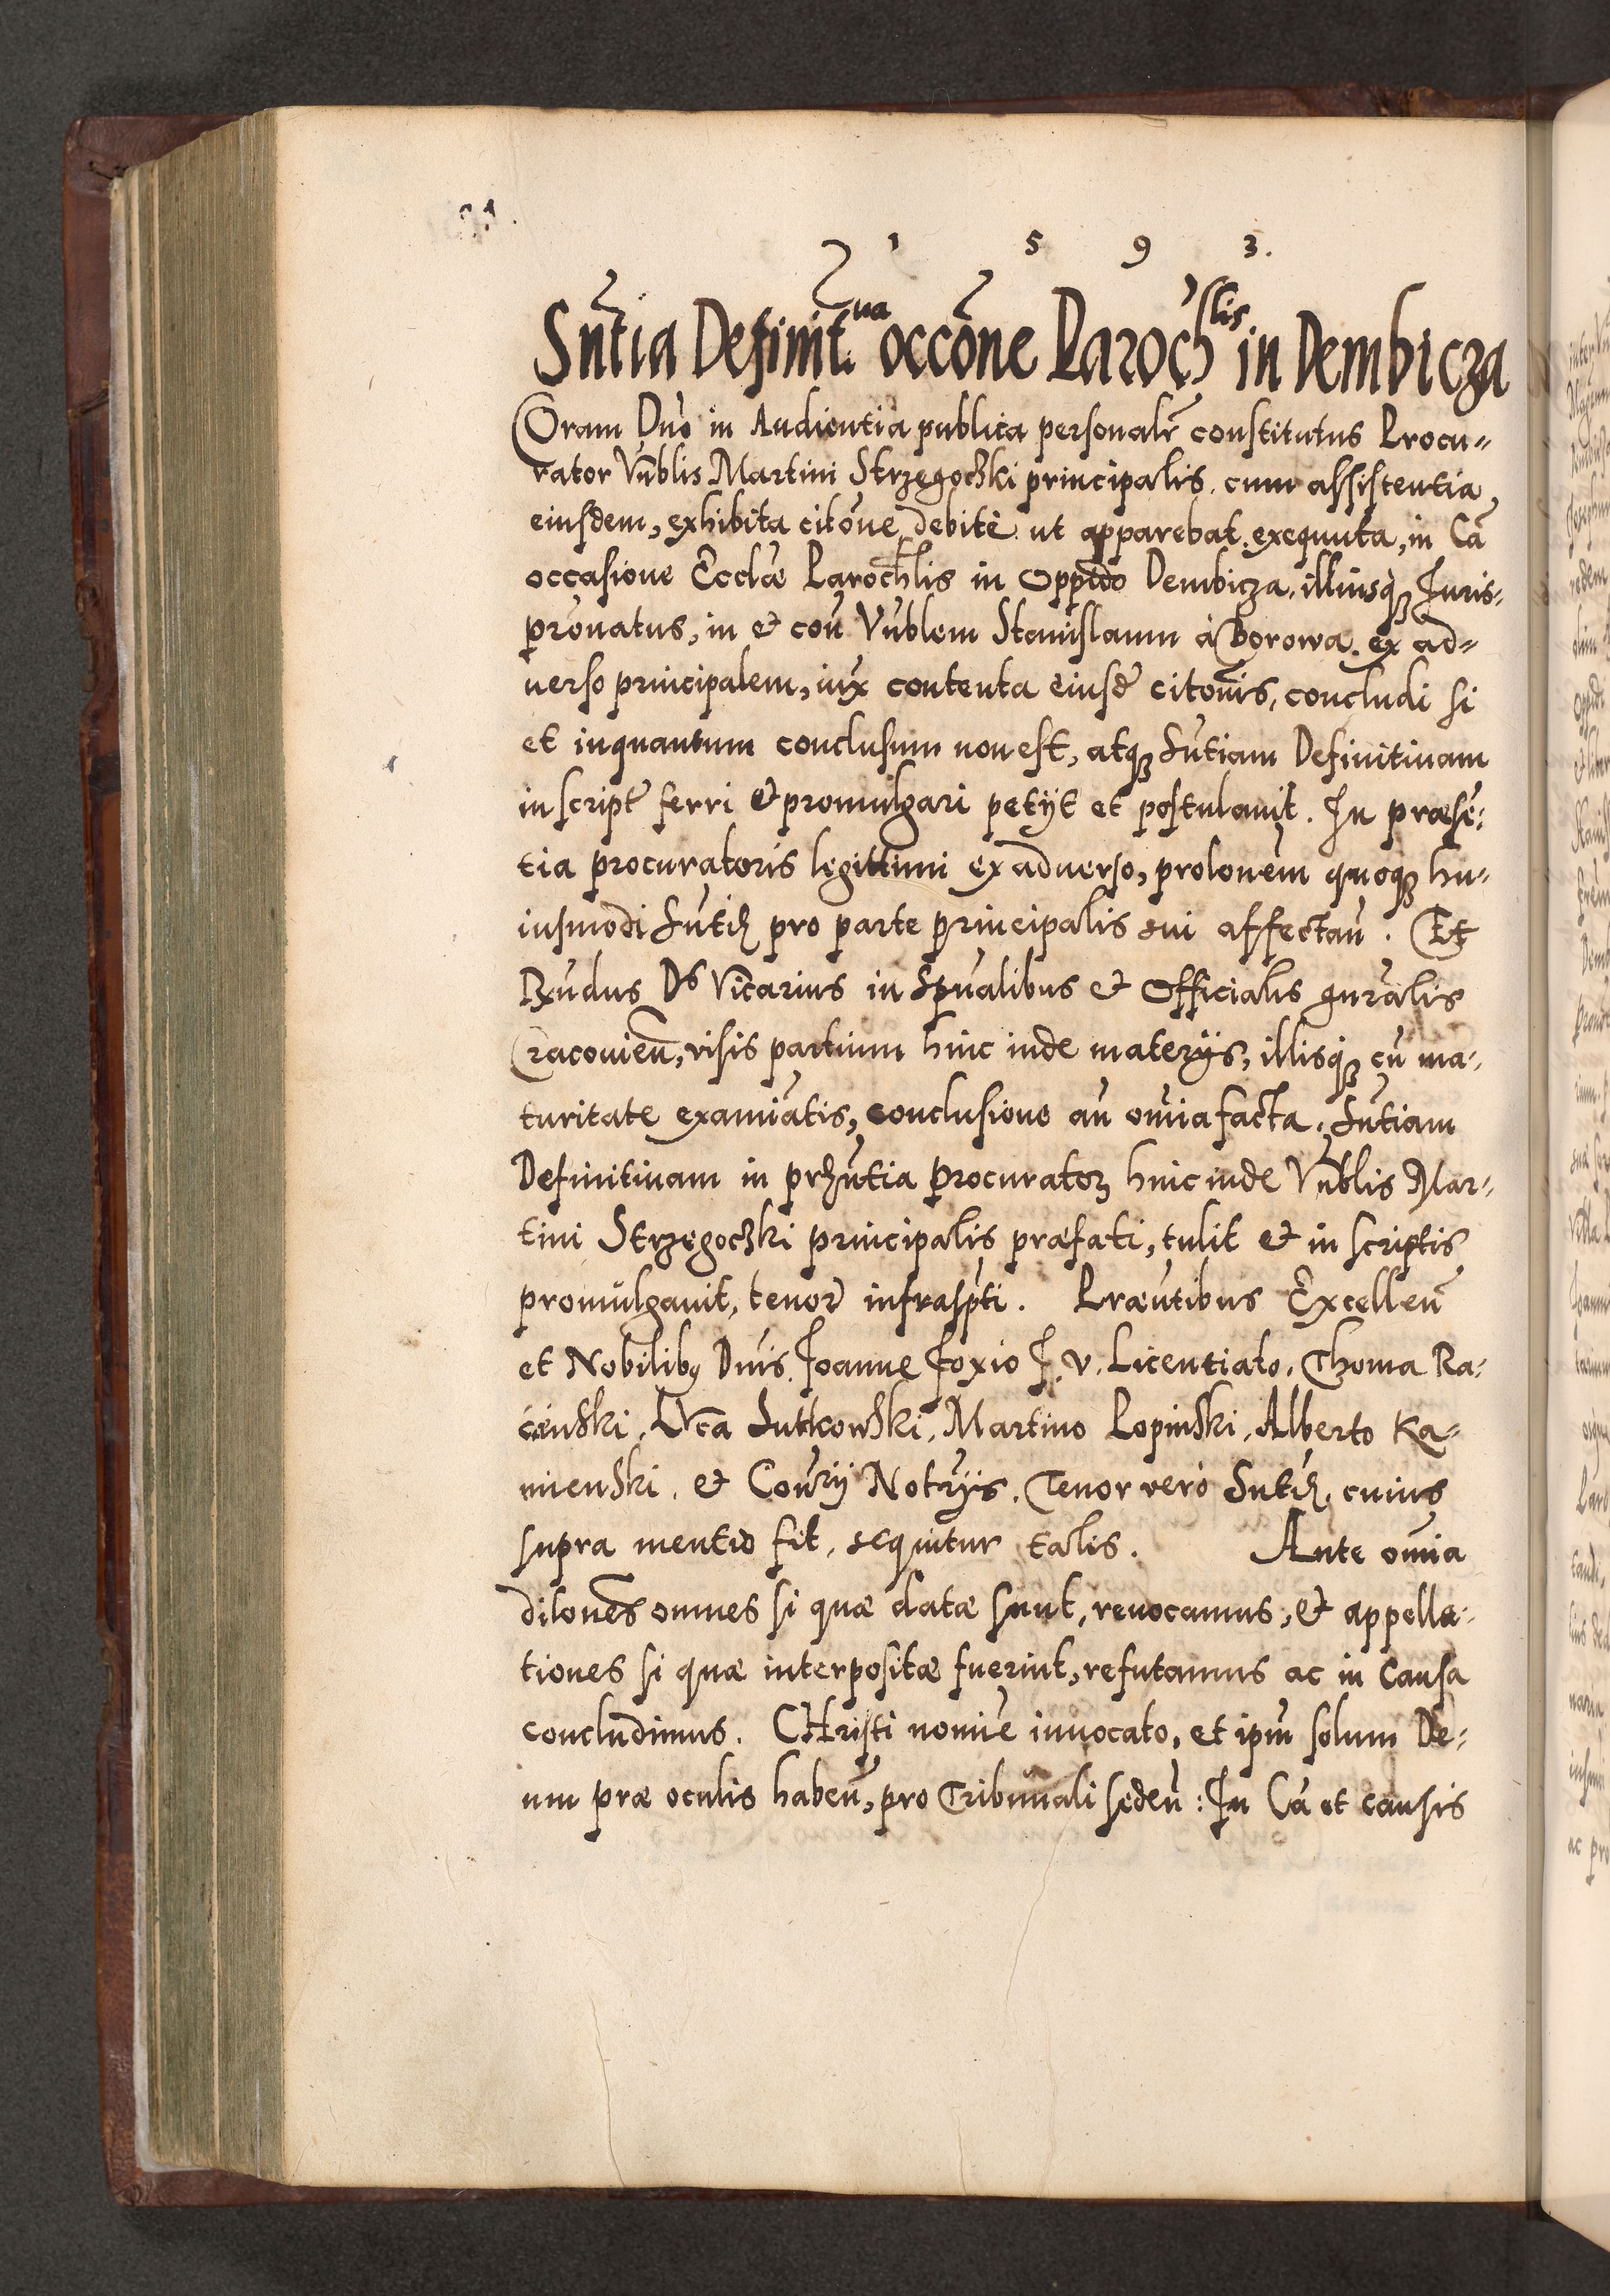 1 5 9 3.
Sñtia Definit.ᵘᵃ occõne Parochˡⁱˢ in Dembicza
Coram Dn̄o in Audientia publica personalr̃ constitutus Procu=
rator Vn̄blis Martini Strzęgoczki principalis. cum assistentia
eiusdem, exhibita citõne debitè ut apparebat. exequuta, in Cã
occasione Eccl̃æ Paroch̃lis in Oppido Dembicza. illiusq̃ꝫ Juris=
prõnatus, in et con̄ Vn̄blem Stanislaum à Borowa. ex ad=
uerso principalem, iux̃ contenta eiusd̃ citõnis, concludi si
et inquantum conclusum non est, atqꝫ Sn̄tiam Definitiuam
in script̃ ferri et promulgari petijt et postulauit. In præsẽ=
tia procuratoris legittimi ex aduerso, prolõnem quoqꝫ hu=
iusmodi Sn̄tiæ pro parte principalis sui affectan̄. Et
Rn̄dus Dˢ Vic̃arius in Spūalibus et Officialis gn̄rãlis
Cracouien̄, visis partium hinc inde materijs, illisq̃ꝫ cũ ma=
turitate examiñatis, conclusione an̄ om̄ia facta. Sn̄tiam
Definitiuam in prꝫn̄tia Procuratoꝝ hinc inde Vn̄blis Mar=
tini Strzęgoczki principalis præfati, tulit et in scriptis
promulgauit, tenor̃ infraspt̃i. Præn̄tibus Excellen̄
et Nobilibꝰ Dn̄is. Joanne Foxio J. V. Licentiato. Thoma Ra=
ćienski, Lvca Lutkowski, Martino Lopinski, Alberto Ka=
mienski. et Cons̃rij Not̃rijs. Tenor verò Sn̄tiæ. cuius
supra mentio fit, sequitur talis. Ante om̄ia
dilões omnes si quæ datæ sunt, reuocamus, et appella=
tiones si quæ interpositæ fuerint, refutamus ac in Causa
concludimus. CHristi nomiñe inuocato, et ipm̃ solum De=
um præ oculis haben̄, pro Tribunali seden̄: In Cã et causis